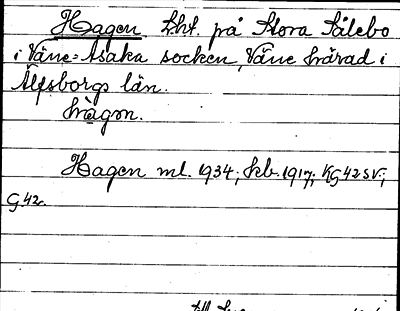 Hagen Lht. på Stora Sålebo
i Väne-Åsaka socken, Väne härad i
Älfsborgs län.
hàgən.
Hagen ml. 1934; hb. 1917; KG 42 SV;
G 42.